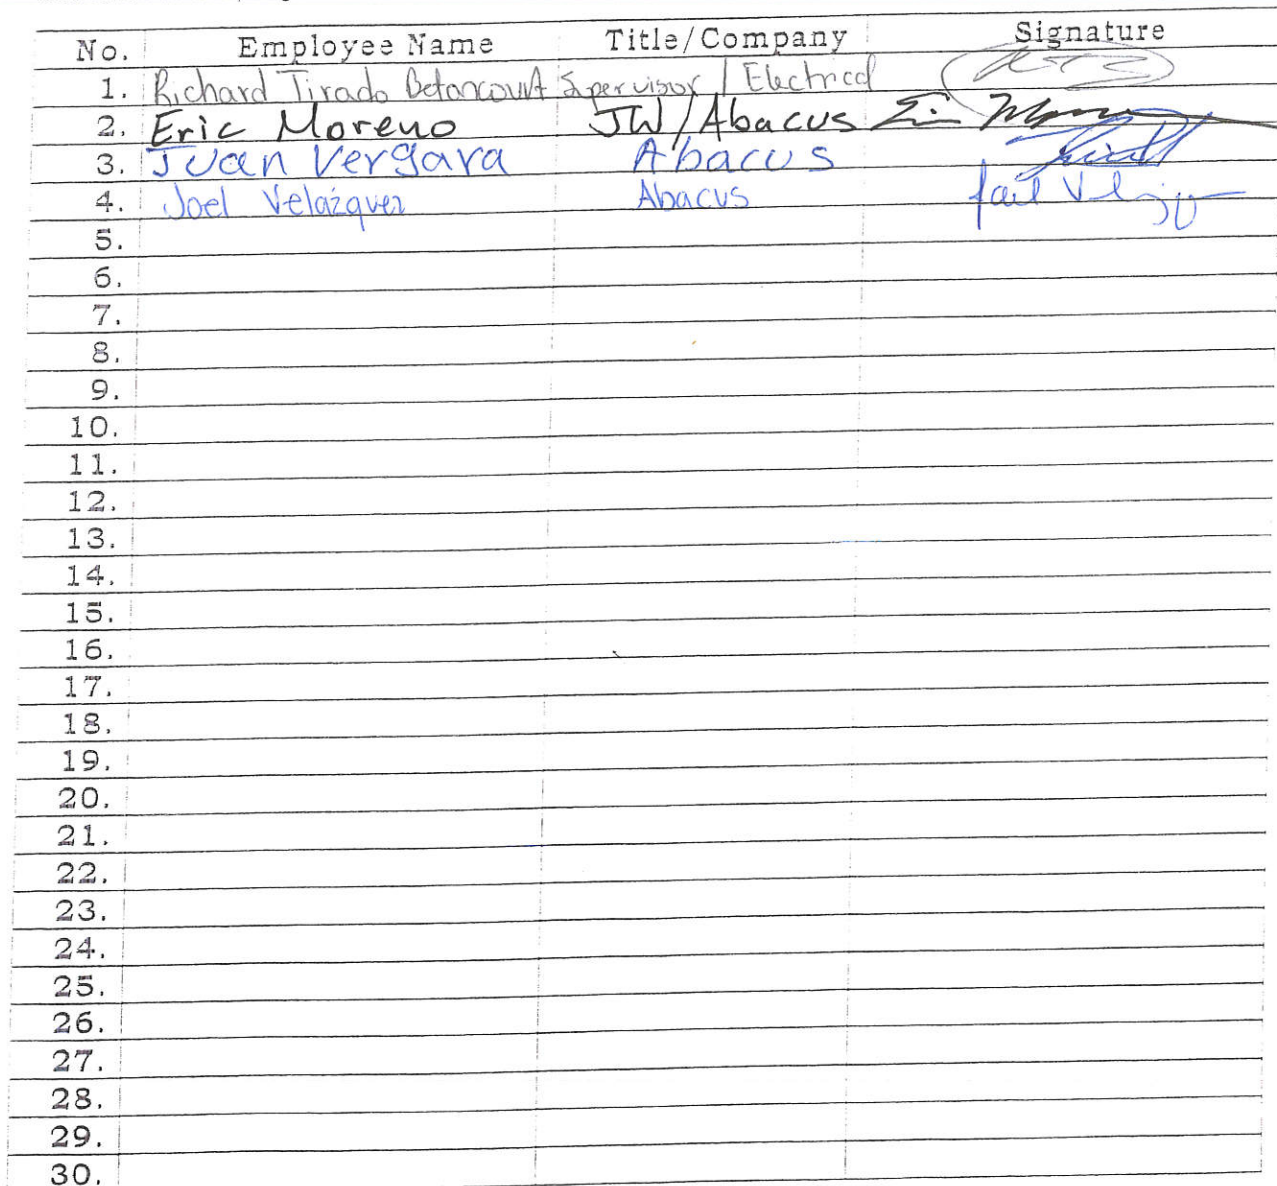 No. Employee Name Title/Company Signature
1. Richard Tirado Betancourt Supervisor / Electrical
2. Eric Moreno JW/Abacus
3. Juan Vergara Abacus
4. Joel Velázquez Abacus
5.
6.
7.
8.
9.
10.
11.
12.
13.
14.
15.
16.
17.
18.
19.
20.
21.
22.
23.
24.
25.
26.
27.
28.
29.
30.